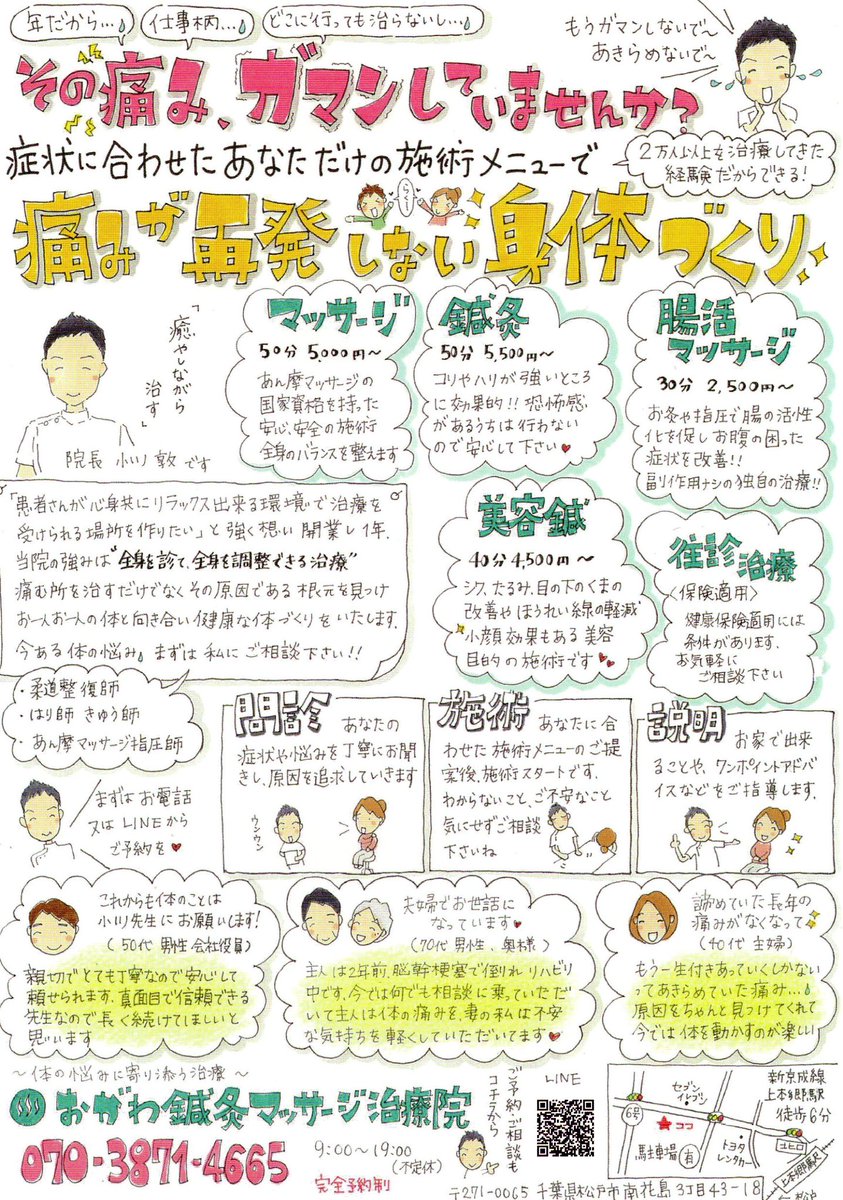 年だから…
仕事柄…
どこに行っても治らないし…
もうガマンしないで〜
あきらめないで〜
その痛み、ガマンしていませんか?
症状に合わせたあなただけの施術メニューで
2万人以上を治療してきた
経験だからできる!
痛みが再発しない身体づくり
「癒やしながら
治す」
院長 小川 敦です
マッサージ
50分 5,000円〜
あん摩マッサージの
国家資格を持った
安心、安全の施術
全身のバランスを整えます
鍼灸
50分 5,500円〜
コリやハリが強いところ
に効果的!!恐怖感
があるうちは行わない
ので安心して下さい
腸活
マッサージ
30分 2,500円〜
お灸や指圧で腸の活性
化を促しお腹の困った
症状を改善!!
副作用ナシの独自の治療!!
「患者さんが心身共にリラックス出来る環境で治療を
受けられる場所を作りたい」と強く想い開業し1年.
当院の強みは"全身を診て、全身を調整できる治療"
痛む所を治すだけでなくその原因である根元を見つけ
お一人お一人の体と向き合い健康な体づくりをいたします.
今ある体の悩み まずは私にご相談下さい!!
美容鍼
40分4,500円〜
シワ、たるみ、目の下のくまの
改善やほうれい線の軽減
小顔効果もある美容
目的の施術です
往診治療
〈保険適用〉
健康保険適用には
条件があります.
お気軽に
ご相談下さい
・柔道整復師
・はり師 きゅう師
・あん摩マッサージ指圧師
まずはお電話
又はLINEから
ご予約を
問診
あなたの
症状や悩みを丁寧にお聞
きし、原因を追求していきます
ウンウン
施術
あなたに合
わせた施術メニューのご提
案後、施術スタートです.
わからないこと、ご不安なこと
気にせずご相談
下さいね
説明
お家で出来
ることや、ワンポイントアドバ
イスなどをご指導します.
これからも体のことは
小川先生にお願いします!
(50代 男性 会社役員)
親切でとても丁寧なので安心して
頼せられます.真面目で信頼できる
先生なので長く続けてほしいと
思います
夫婦でお世話に
なっています
(70代 男性、奥様)
主人は2年前、脳幹梗塞で倒れリハビリ
中です.今では何でも相談に乗っていただ
いて主人は体の痛みを、妻の私は不安
な気持ちを軽くしていただいてます
諦めていた長年の
痛みがなくなって
(40代 主婦)
もう一生付きあっていくしかない
ってあきらめていた痛み…
原因をちゃんと見つけてくれて
今では体を動かすのが楽しい
〜体の悩みに寄り添う治療〜
おがわ鍼灸マッサージ治療院
070-3871-4665
9:00〜19:00
(不定休)
完全予約制
ご予約・ご相談も
コチラから
LINE
セブン
イレブン
6号
ココ
駐車場 有
トヨタ
レンタカー
新京成線
上本郷駅
徒歩6分
ユヒロ
上本郷駅
松戸
〒271-0065 千葉県松戸市南花島3丁目43-18